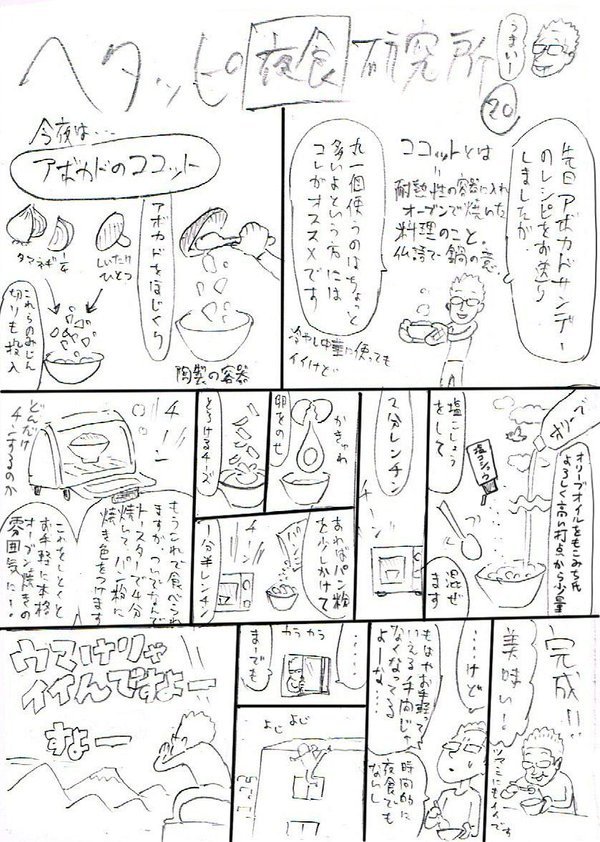 うまいー
ヘタッピの夜食研究所
20
先日アボカドサンデー
のレシピをお送り
しましたが、
ココットとは
=
耐熱性の容器に入れ
オーブンで焼いた
料理のこと。
仏語で鍋の意
丸一個使うのはちょっと
多いよという方には
コレがオススメです
冷やし中華に使っても
イイけど
今夜は・・・
アボカドのココット
アボカドをほじくり
陶製の容器
タマネギ
しいたけ
ひとつ
これらのみじん
切りも投入
オリーブ
オリーブオイルをもこみち氏
よろしく高い打点から少量
塩こしょう
をして
塩コショウ
混ぜ
ます
2分レンチン
チーン
かきゃわ
卵をのせ
とろけるチーズ
あればパン粉
を少しかけて
チーン
1分半レンチン
もうこれで食べられ
ますが、ついでなんで
トースターで4分
焼いて、パン粉に
焼き色をつけます
チーン
どんだけ
チンするのか
これをしとくと
お手軽に本格
オーブン焼きの
雰囲気に!
完成!!
美味い!
ツマミにもイイです
・・・けど
もはやお手軽って
いえる手間じゃ
なくなってる
よーな・・・
時間的に
夜食でも
ないし
・・・・・
まーでも
カラカラ
よじよじ
ウマけりゃ
イイんですよー
すよー